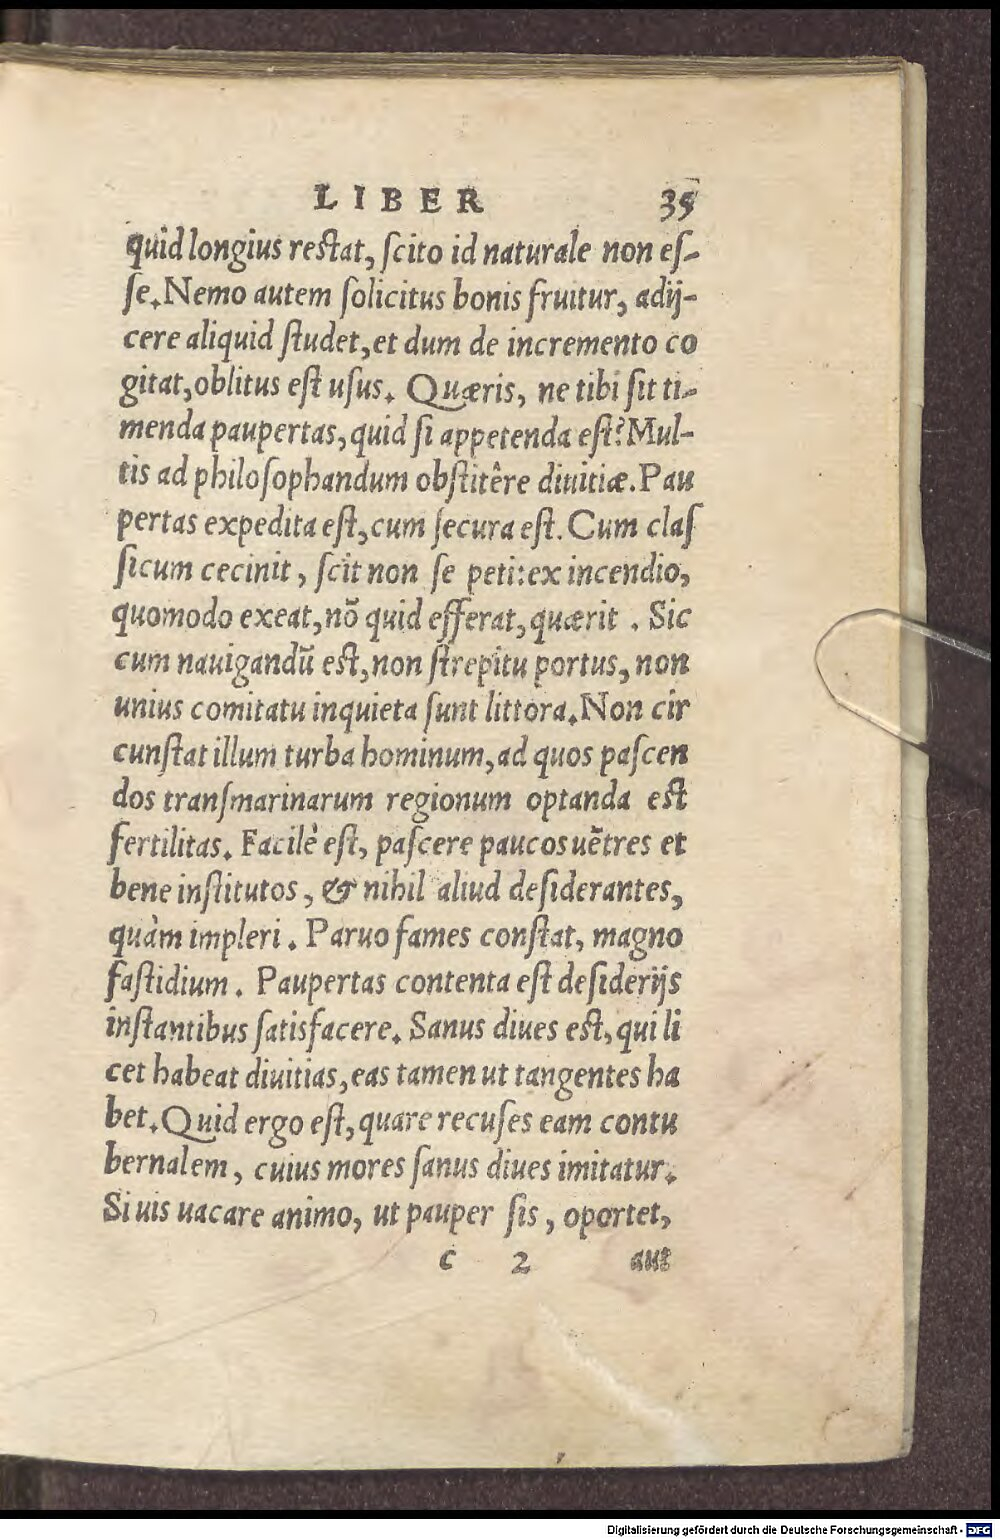 LIBER 35
quid longius reſtat, ſcito id naturale non eſ-
ſe. Nemo autem ſolicitus bonis fruitur, adij-
cere aliquid ſtudet, et dum de incremento co
gitat, oblitus eſt uſus. Quæris, ne tibi ſit ti-
menda paupertas, quid ſi appetenda eſt? Mul-
tis ad philoſophandum obſtitêre diuitiæ. Pau
pertas expedita eſt, cum ſecura eſt. Cum claſ
ſicum cecinit, ſcit non ſe peti: ex incendio,
quomodo exeat, nō quid efferat, quærit. Sic
cum nauigandū eſt, non ſtrepitu portus, non
unius comitatu inquieta ſunt littora. Non cir
cunſtat illum turba hominum, ad quos paſcen
dos tranſmarinarum regionum optanda eſt
fertilitas. Facilè eſt, paſcere paucos uētres et
bene inſtitutos, & nihil aliud deſiderantes,
quàm impleri. Paruo fames conſtat, magno
faſtidium. Paupertas contenta eſt deſiderijs
inſtantibus ſatisfacere. Sanus diues eſt, qui li
cet habeat diuitias, eas tamen ut tangentes ha
bet. Quid ergo eſt, quare recuſes eam contu
bernalem, cuius mores ſanus diues imitatur.
Si uis uacare animo, ut pauper ſis, oportet,
c 2 aut
Digitalisierung gefördert durch die Deutsche Forschungsgemeinschaft - DFG